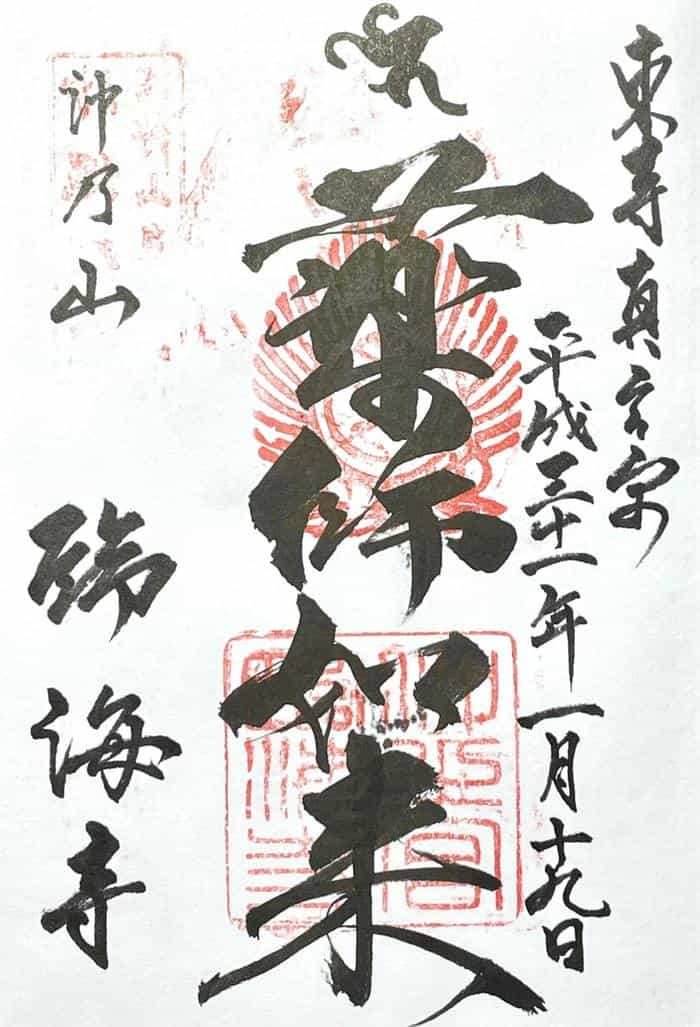 東寺真言宗
平成三十一年一月十九日
薬師如来
乃山
海寺